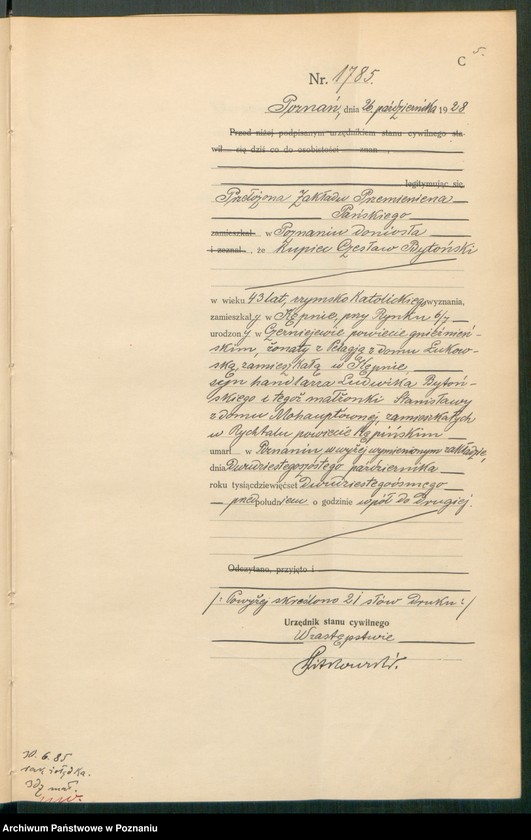 C 5.
Nr. 1785.
Poznań, dnia 26 października 1928
Przed niżej podpisanym urzędnikiem stanu cywilnego sta-
wił się dziś co do osobistości znan
legitymując się
Przełożona Zakładu Przemienienia
Pańskiego
zamieszkał w Poznaniu doniosła
i zeznał, że kupiec Czesław Bytoński
w wieku 43 lat, rzymsko katolickiego wyznania,
zamieszkały w Kępnie, przy Rynku 6/7
urodzony w Gerniejewie powiecie gnieźnień-
skim, żonaty z Pelagją z domu Łukow-
ską, zamieszkałą w Kępnie,
syn handlarza Ludwika Bytoń-
skiego i tegoż małżonki Stanisławy
z domu Mohauptównej, zamieszkałych
w Rychtalu powiecie Kępińskim
umarł w Poznaniu w wyżej wymienionym zakładzie,
dnia Dwudziestegopiątego października
roku tysiącdziewięćset Dwudziestegoósmego
przed południem o godzinie wpół do drugiej.
Odczytano, przyjęto i
/: Powyżej skreślono 21 słów druku :/
Urzędnik stanu cywilnego
W zastępstwie
30. 6. 85
rak żołądka.
3dz. mał.
Archiwum Państwowe w Poznaniu